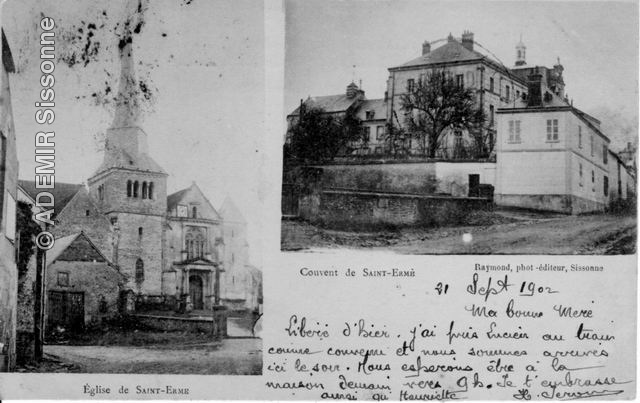 © ADEMIR Sissonne
Couvent de SAINT-ERME
Raymond, phot-éditeur, Sissonne
21 Sept 1902
Ma bonne Mère
Libéré d'hier. j'ai pris Lucien au train
comme convenu et nous sommes arrivés
ici le soir. Nous espérons être à la
maison demain vers 9h. Je t'embrasse
ainsi qu'Henriette
Église de SAINT-ERME